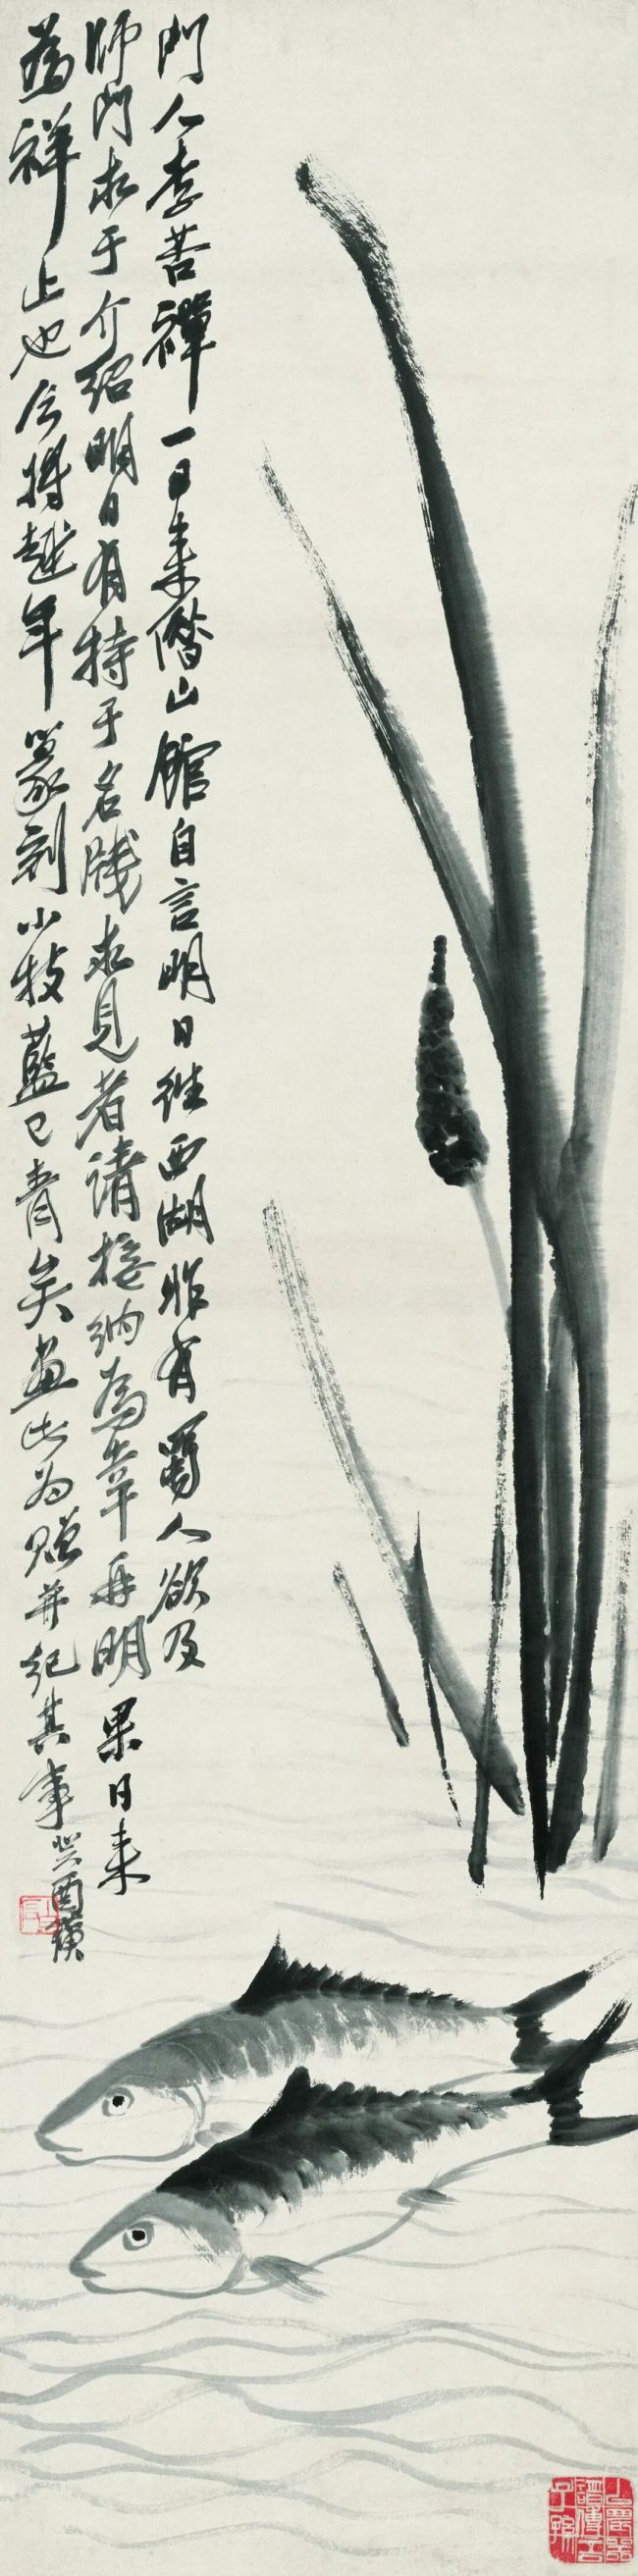 門人李苦禪一日来借山館自言明日往西湖昨有蜀人欲及
師門求于介紹明日有持于名牋求見者請接納為幸再明果日来
為祥止也今將越年篆刻小技藍已青矣畫此為贈并紀其事癸酉璜